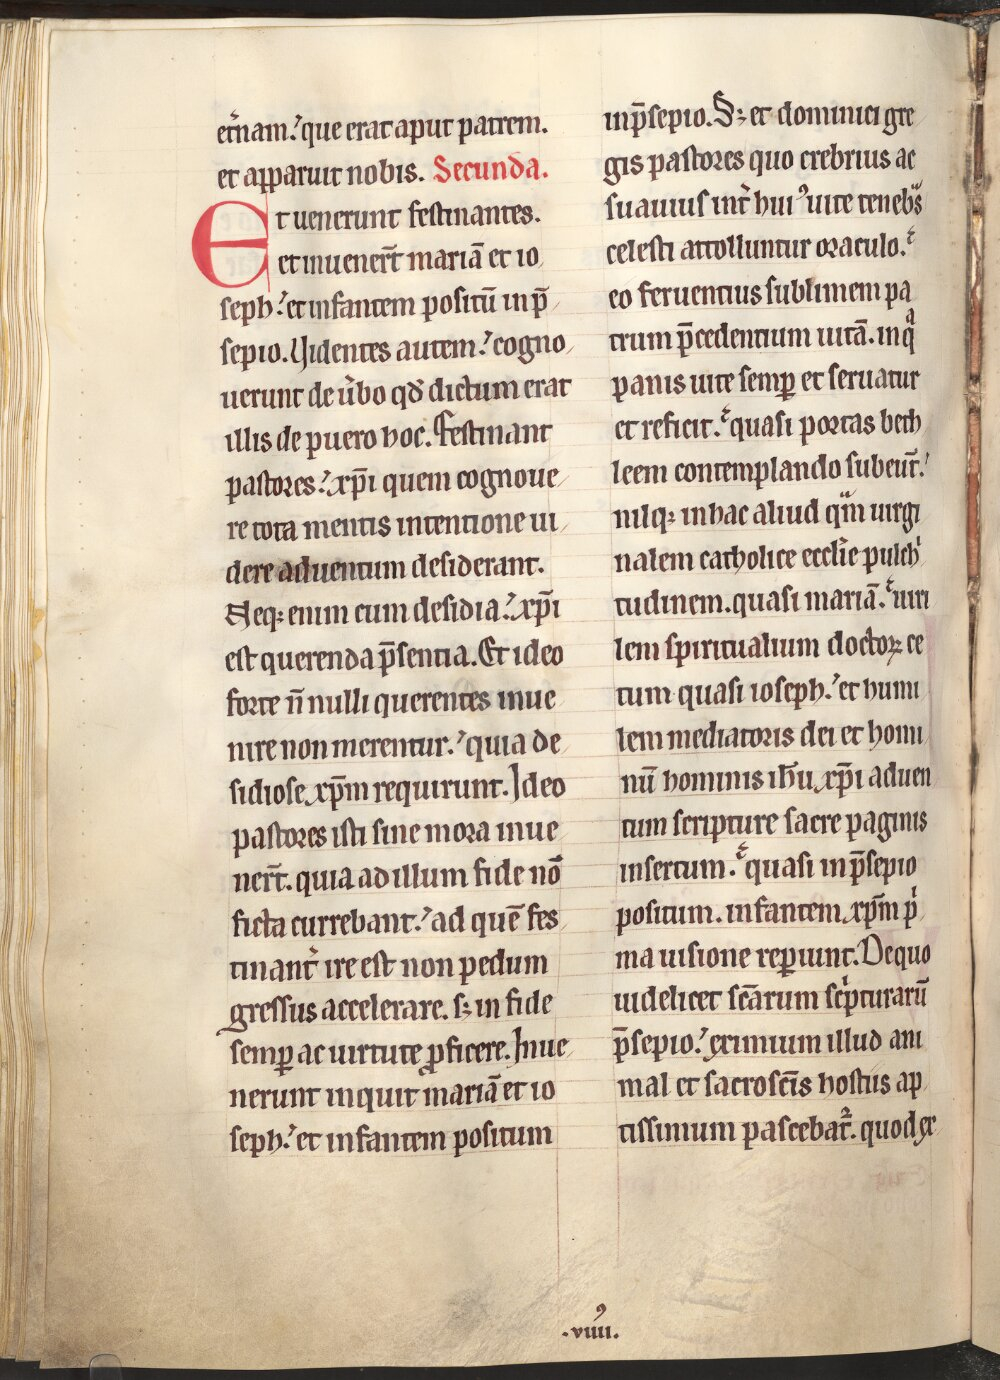 et̄nam. que erat aput patrem.
et apparuit nobis. Secunda.
Et uenerunt festinantes.
et inuener̄t mariā et io
seph. et infantem positū in p̄
sepio. Videntes autem. cogno
uerunt de u̇bo qd̄ dictum erat
illis de puero hoc. Festinant
pastores. xp̄i quem cognoue
re tota mentis intentione ui
dere aduentum desiderant.
Neq; enim cum desidia. xp̄i
est querenda p̄sentia. Et ideo
forte n̄ nulli querentes inue
nire non merentur. quia de
sidiose xp̄m requirunt. Ideo
pastores isti sine mora inue
ner̄t. quia ad illum fide nō
ficta currebant. ad quē fes
tinant᷑ ire est non pedum
gressus accelerare. s; in fide
semꝑ ac uirtute ꝓficere. Inue
nerunt inquit mariā et io
seph. et infantem positum
in p̄sepio. S; et dominici gre
gis pastores quo crebrius ac
suauius int᷑ hui᾽ uite tenebͣs
celesti attolluntur oraculo.
eo feruentius sublimem pa
trum p̄cedentium uitā. in qͣ
panis uite semꝑ et seruatur
et reficit. quasi portas beth
leem contemplando subeūt.
nilq; in hac aliud qͣm uirgi
nalem catholice eccl̄ie pulch͛
tudinem. quasi mariā. uiri
lem spiritualium doctoꝝ ce
tum quasi ioseph. et humi
lem mediatoris dei et homi
nū hominis ih̄u xp̄i aduen
tum scripture sacre paginis
insertum. quasi in p̄sepio
positum. infantem xp̄m pͥ
ma uisione reꝑiunt. De quo
uidelicet sc̄arum scͥpturarū
p̄sepio. eximium illud ani
mal et sacrosc̄is hostiis ap
tissimum pascebat᷑. quod ex
.viiii᾽.